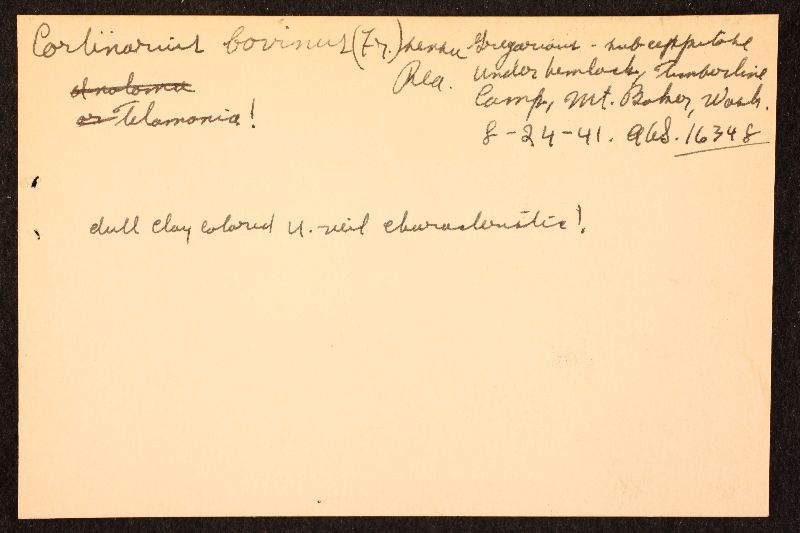 Cortinarius bovinus (Fr.) sensu Rea.
Inoloma
or Telamonia!
Gregarious - subceppitose
under hemlock, Timberline
Camp, Mt. Baker, Wash.
8-24-41. AHS. 16348
dull clay colored u. veil characteristic!